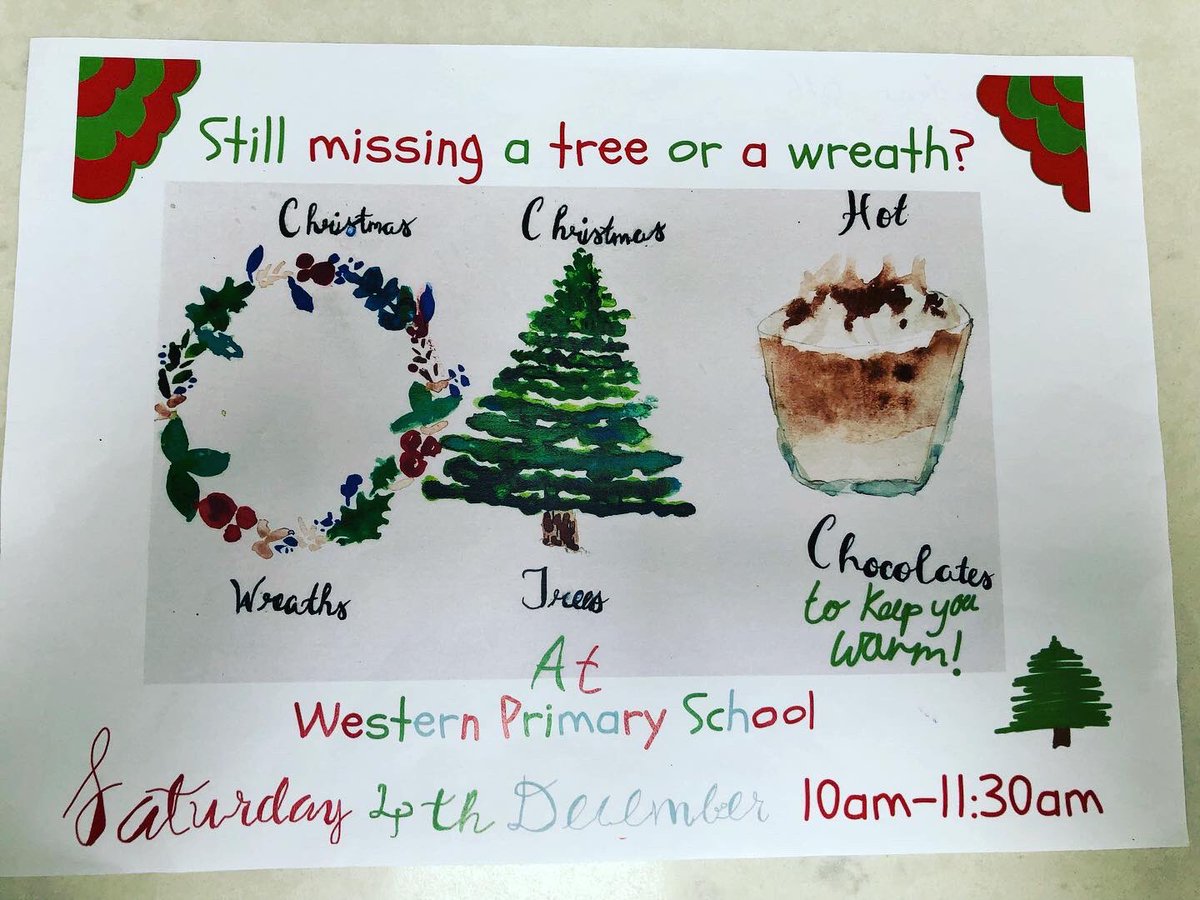 Still missing a tree or a wreath?
Christmas
Wreaths
Christmas
Trees
Hot
Chocolates
to keep you
warm!
At
Western Primary School
Saturday 4th December 10am-11:30am